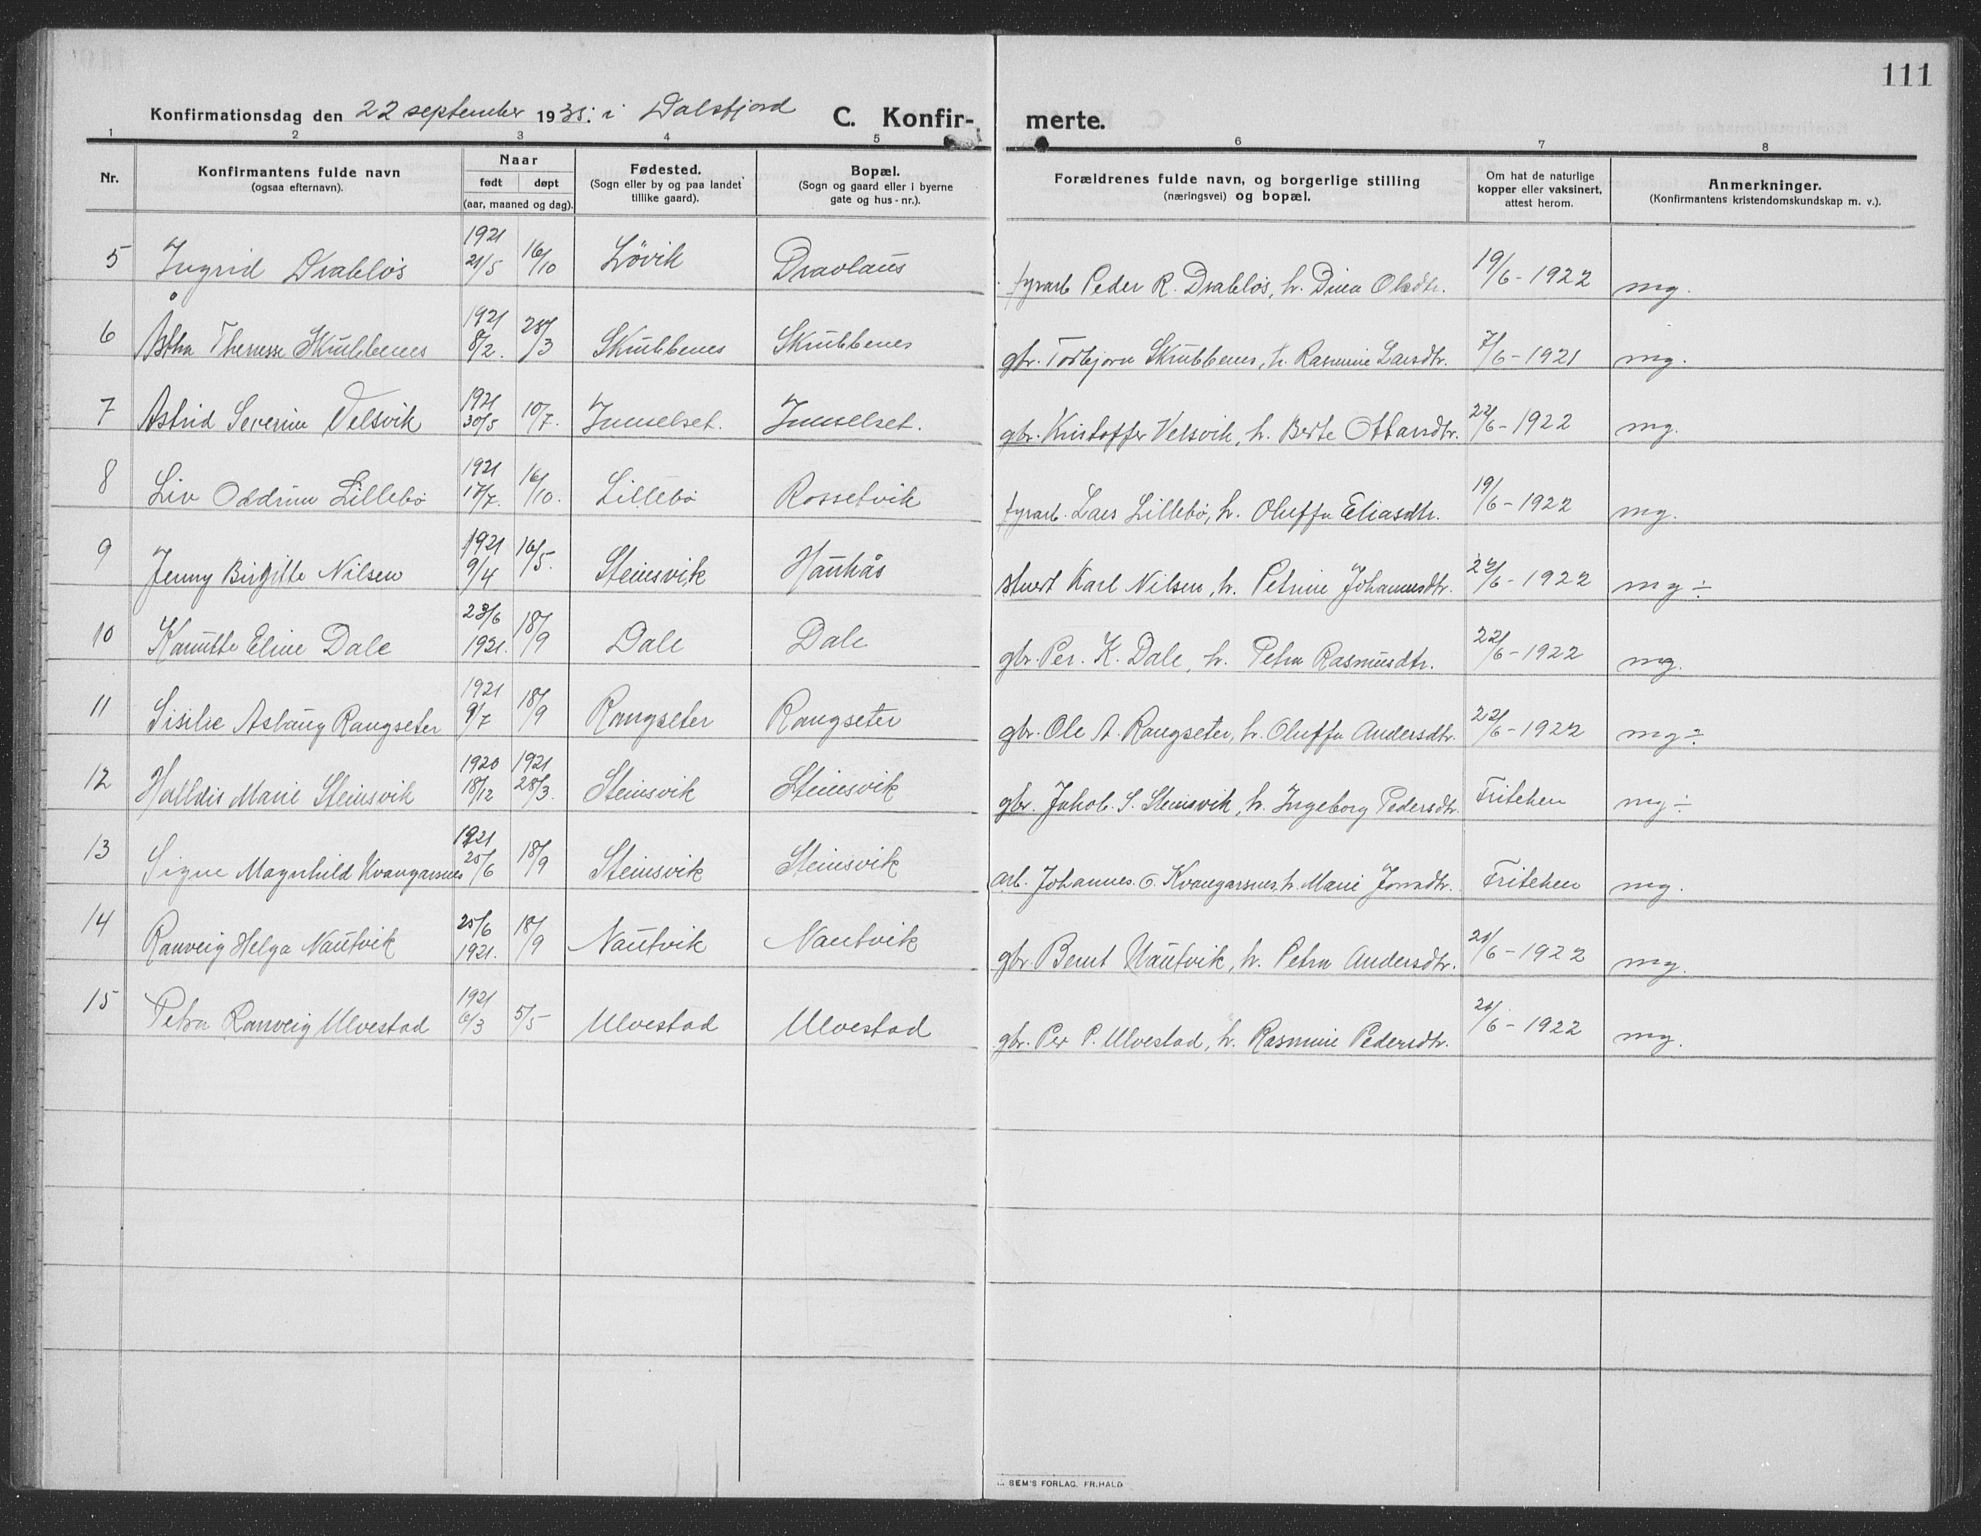 111
Konfirmationsdag den 22 september 1935. i Dalsfjord C. Konfir- merte.
1 2 3 4 5 6 7 8
Nr. Konfirmantens fulde navn (ogsaa efternavn). Naar født døpt (aar, maaned og dag). Fødested. (Sogn eller by og paa landet tillike gaard). Bopæl. (Sogn og gaard eller i byerne gate og hus-nr.). Forældrenes fulde navn, og borgerlige stilling (næringsvei) og bopæl. Om hat de naturlige kopper eller vaksinert, attest herom. Anmerkninger. (Konfirmantens kristendomskundskap m. v.).
5 Ingrid Drabløs 1921 21/5 16/10 Løvik Dravlaus fyrarb Peder R. Drabløs, h. Dina Olsdtr. 19/6-1922 mg.
6 Åsta Therese Skubbenes 1921 8/2. 28/3 Skubbenes Skubbenes gbr. Torbjørn Skubbenes, h. Rasmine Larsdtr. 7/6-1921 mg.
7 Astrid Severine Velsvik 1921 30/5 10/7. Innselset. Innselset. gbr. Kristoffer Velsvik, h. Berte Ottarsdtr. 22/6-1922 mg.
8 Liv Oddrun Lillebø 1921 17/7. 16/10. Lillebø Rossetvik fyrarb. Lars Lillebø, h. Oluffa Eliasdtr. 19/6-1922 mg.
9 Jenny Birgitte Nilsen 1921 9/4 16/5. Steinsvik Hauhås stuert Karl Nilsen, h. Petrine Johannesdtr. 22/6-1922 mg÷
10 Kanutte Eline Dale 23/6 1921. 18/9 Dale Dale gbr. Per. K. Dale, h. Petra Rasmusdtr. 22/6-1922 mg.
11 Sisilie Aslaug Rangseter 1921 9/7 18/9 Rangseter Rangseter gbr. Ole A. Rangseter, h. Oluffa Andersdtr. 22/6-1922 mg÷
12 Halldis Marie Steinsvik 1920 18/12 1921 28/3. Steinsvik Steinsvik gbr. Jakob. S. Steinsvik, h. Ingeborg Pedersdtr. Fritehen mg÷
13 Signe Magnhild Kvangarsnes 1921 25/6 18/9 Steinsvik Steinsvik arb. Johannes. O. Kvangarsnes, h. Marie Jonsdtr. Fritehen mg.
14 Ranveig Helga Nautvik 25/6 1921. 18/9 Nautvik Nautvik gbr. Bernt Nautvik, h. Petra Andersdtr. /6-1922 mg.
15 Petra Ranveig Ulvestad 1921 6/3 5/5 Ulvestad Ulvestad gbr. Per P. Ulvestad, h. Rasmine Pedersdtr. /6-1922 mg.
SEM'S FORLAG, FR.HALD